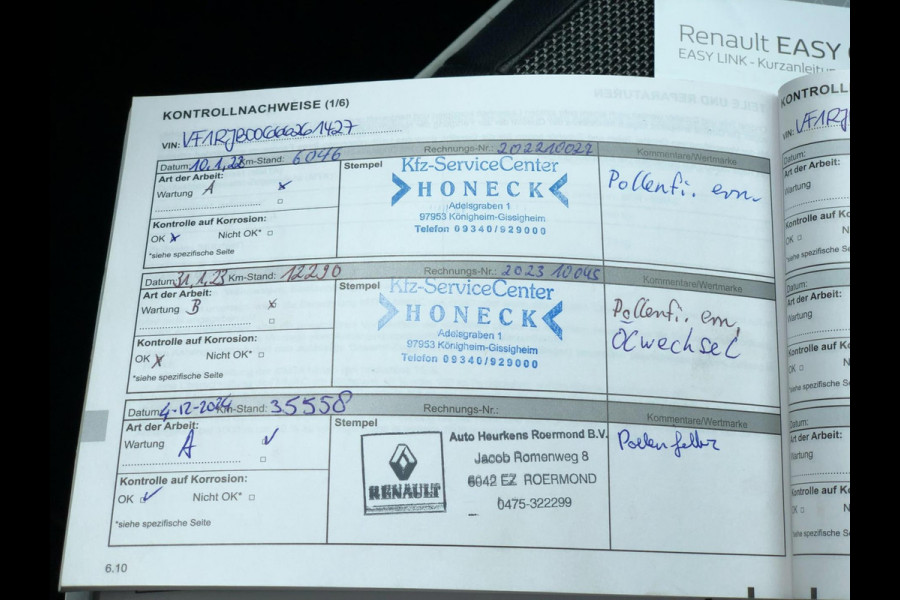 Renault EASY
EASY LINK - Kurzanleitu
KONTROLLNACHWEISE (1/6)
VIN:
Datum: 10.1.22 Km-Stand: 6046 Rechnungs-Nr.: Kommentare/Wertmarke
Art der Arbeit:
Wartung A
Kontrolle auf Korrosion:
OK x Nicht OK*
*siehe spezifische Seite
Stempel
Kfz-ServiceCenter
HONECK
Adelsgraben 1
97953 Königheim-Gissigheim
Telefon 09340/929000
Pollenfi. ern.
Datum: 31.1.23 Km-Stand: 12290 Rechnungs-Nr.: 2023 10045 Kommentare/Wertmarke
Art der Arbeit:
Wartung B x
Kontrolle auf Korrosion:
OK x Nicht OK*
*siehe spezifische Seite
Stempel
Kfz-ServiceCenter
HONECK
Adelsgraben 1
97953 Königheim-Gissigheim
Telefon 09340/929000
Pollenfi. ern,
Ölwechsel
Datum: 4-12-2024 Km-Stand: 35558 Rechnungs-Nr.: Kommentare/Wertmarke
Art der Arbeit:
Wartung A
Kontrolle auf Korrosion:
OK Nicht OK*
*siehe spezifische Seite
Stempel
RENAULT
Auto Heurkens Roermond B.V.
Jacob Romenweg 8
6042 EZ ROERMOND
0475-322299
6.10
KONTROLL
VIN: VF1RJ
Datum:
Art der Arbeit:
Wartung
Kontrolle auf Ko
OK
*siehe spezifische Se
Datum:
Art der Arbeit:
Wartung
Kontrolle auf Ko
OK
*siehe spezifische Se
Datum:
Art der Arbeit:
Wartung
Kontrolle auf Ko
OK
*siehe spezifische Se